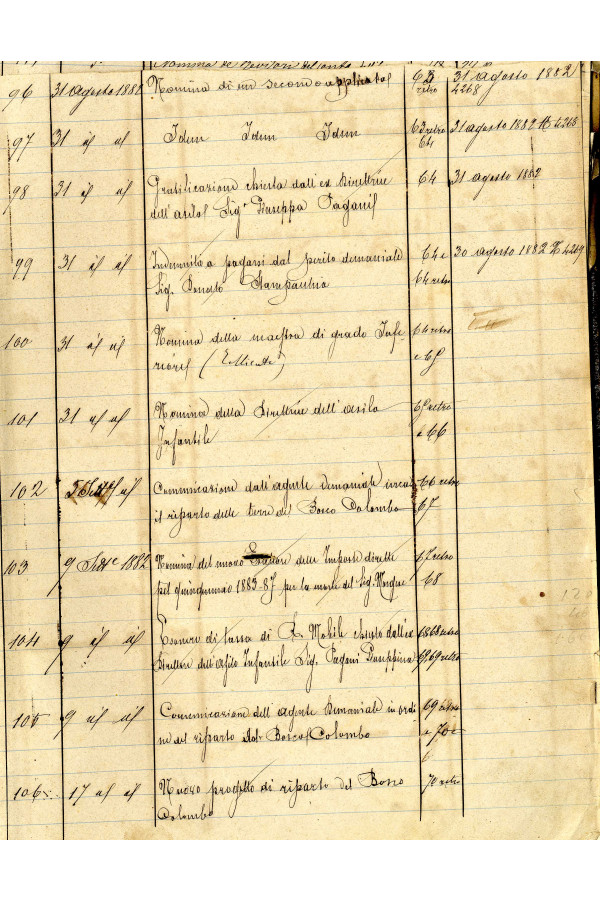 Nomina de Revisori del conto
96 31 agosto 1882 Nomina di un secondo applicato 63 31 agosto 1882
retro 4268
97 31 id id Idem Idem Idem 63 retro 31 agosto 1882 N 4268
64
98 31 id id Gratificazione chiesta dall'ex Direttrice 64 31 agosto 1882
dell'asilo Sig.a Giuseppa Pagani
99 31 id id Indennità a pagarsi dal perito demaniale 64 e 30 agosto 1882 N 4269
Sig. Donato 64 retro
100 31 id id Nomina della maestra di grado Infe- 64 retro
riore e 65
101 31 id id Nomina della Direttrice dell'asilo 65 retro
Infantile e 66
102 5 Sett id Comunicazione dall'agente demaniale circa 66 retro
il riparto delle terre del Bosco Colombo 67
103 9 Sett.e 1882 Nomina del nuovo Esattore delle Imposte dirette 67 retro
pel quinquennio 1883-87 per la morte del Sig. 68
104 9 id id Esonero di tassa di R. Mobile chiesto dall'ex 68 68 retro
Direttrice dell'Asilo Infantile Sig. Pagani Giuseppina 69 69 retro
105 9 id id Comunicazione dell'agente Demaniale in ordi 69 retro
ne del riparto del Bosco Colombo e 70 e
106 17 id id Nuovo progetto di riparto del Bosco 70 retro
Colombo